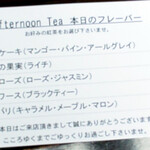 fternoon Tea 本日のフレーバー
お好みの紅茶をお選び下さいませ。
ケーキ(マンゴー・パイン・アールグレイ)
の果実(ライチ)
ローズ(ローズ・ジャスミン)
ワース(ブラックティー)
パリ(キャラメル・メープル・マロン)
本日はご来店頂きまして誠にありがとうございます
こころゆくまでごゆっくりお過ごし下さいませ。